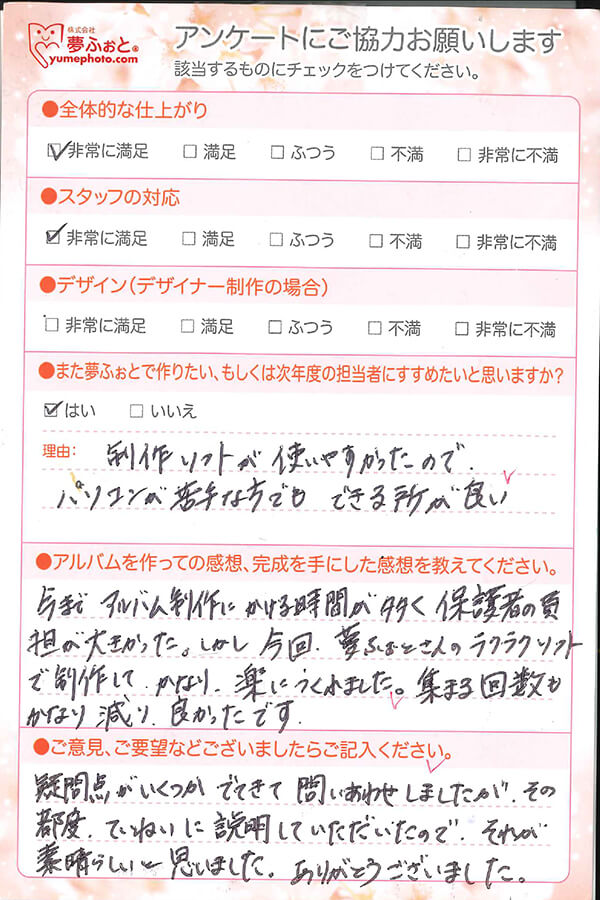 株式会社
夢ふぉと®
yumephoto.com
アンケートにご協力お願いします
該当するものにチェックをつけてください。
●全体的な仕上がり
☑非常に満足 □満足 □ふつう □不満 □非常に不満
●スタッフの対応
☑非常に満足 □満足 □ふつう □不満 □非常に不満
●デザイン(デザイナー制作の場合)
□非常に満足 □満足 □ふつう □不満 □非常に不満
●また夢ふぉとで作りたい、もしくは次年度の担当者にすすめたいと思いますか?
☑はい □いいえ
理由: 制作ソフトが使いやすかったので、
パソコンが苦手な方でもできる所が良い
●アルバムを作っての感想、完成を手にした感想を教えてください。
今まで アルバム制作にかける時間が多く 保護者の負
担が大きかった。しかし 今回、夢ふぉとさんのラクラクソフト
で制作して、かなり、楽につくれました。集まる回数も
かなり減り、良かったです。
●ご意見、ご要望などございましたらご記入ください。
疑問点がいくつかでてきて 問いあわせしましたが、その
都度、ていねいに説明していただいたので、それが
素晴らしいと思いました。ありがとうございました。